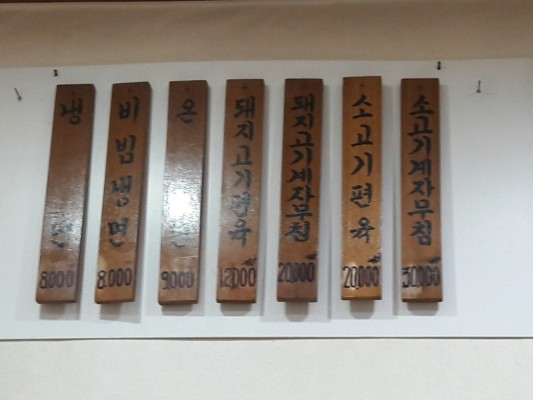 냉면
8,000
비빔냉면
8,000
온면
9,000
돼지고기편육
12,000
돼지고기계자무침
20,000
소고기편육
20,000
소고기계자무침
30,000